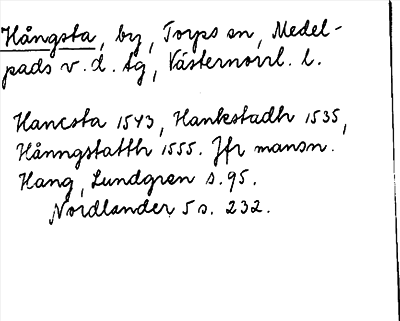 Hångsta, by, Torps sn, Medel-
pads v. d. tg, Västernorrl. l.
Hancsta 1543, Hankstadh 1535,
Hånngstatth 1555. Jfr mansn.
Hang, Lundgren s. 95.
Nordlander 5 s. 232.